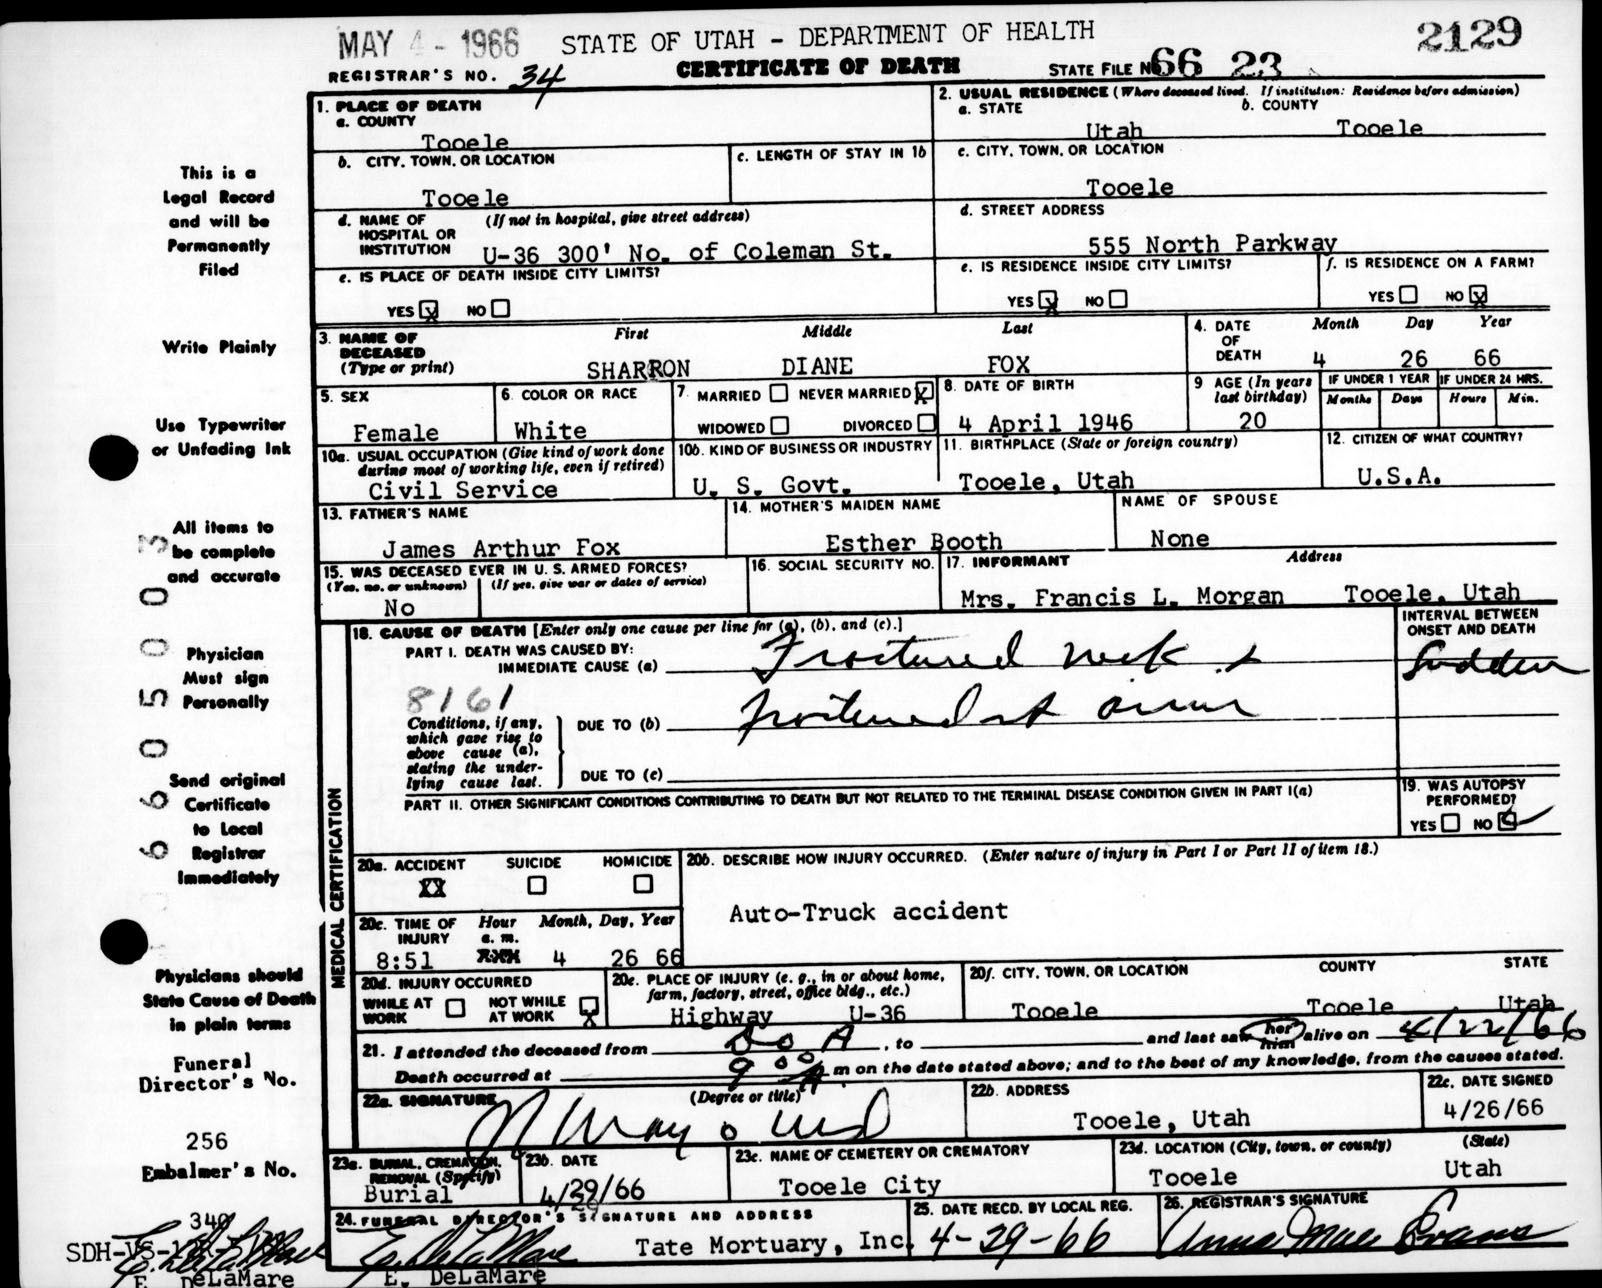 MAY 4 - 1966 STATE OF UTAH - DEPARTMENT OF HEALTH 2129
REGISTRAR'S NO. 34 CERTIFICATE OF DEATH STATE FILE NO 66 23
1. PLACE OF DEATH
a. COUNTY
Tooele
2. USUAL RESIDENCE (Where deceased lived. If institution: Residence before admission)
a. STATE b. COUNTY
Utah Tooele
b. CITY, TOWN, OR LOCATION
Tooele
c. LENGTH OF STAY IN 1b
c. CITY, TOWN, OR LOCATION
Tooele
d. NAME OF HOSPITAL OR INSTITUTION (If not in hospital, give street address)
U-36 300' No. of Coleman St.
d. STREET ADDRESS
555 North Parkway
e. IS PLACE OF DEATH INSIDE CITY LIMITS?
YES X NO
e. IS RESIDENCE INSIDE CITY LIMITS?
YES X NO
f. IS RESIDENCE ON A FARM?
YES NO X
3. NAME OF DECEASED (Type or print)
First Middle Last
SHARRON DIANE FOX
4. DATE OF DEATH
Month Day Year
4 26 66
5. SEX
Female
6. COLOR OR RACE
White
7. MARRIED NEVER MARRIED X
WIDOWED DIVORCED
8. DATE OF BIRTH
4 April 1946
9 AGE (In years last birthday)
20
IF UNDER 1 YEAR IF UNDER 24 HRS.
Months Days Hours Min.
10a. USUAL OCCUPATION (Give kind of work done during most of working life, even if retired)
Civil Service
10b. KIND OF BUSINESS OR INDUSTRY
U. S. Govt.
11. BIRTHPLACE (State or foreign country)
Tooele, Utah
12. CITIZEN OF WHAT COUNTRY?
U.S.A.
13. FATHER'S NAME
James Arthur Fox
14. MOTHER'S MAIDEN NAME
Esther Booth
NAME OF SPOUSE
None
15. WAS DECEASED EVER IN U. S. ARMED FORCES?
(Yes, no, or unknown) (If yes, give war or dates of service)
No
16. SOCIAL SECURITY NO.
17. INFORMANT Address
Mrs. Francis L. Morgan Tooele, Utah
MEDICAL CERTIFICATION
18. CAUSE OF DEATH [Enter only one cause per line for (a), (b), and (c).]
INTERVAL BETWEEN ONSET AND DEATH
PART I. DEATH WAS CAUSED BY:
IMMEDIATE CAUSE (a) Fractured neck + Sudden
8161
Conditions, if any, which gave rise to above cause (a), stating the underlying cause last.
DUE TO (b) fractured
DUE TO (c)
PART II. OTHER SIGNIFICANT CONDITIONS CONTRIBUTING TO DEATH BUT NOT RELATED TO THE TERMINAL DISEASE CONDITION GIVEN IN PART I(a)
19. WAS AUTOPSY PERFORMED?
YES NO
20a. ACCIDENT SUICIDE HOMICIDE
XX
20b. DESCRIBE HOW INJURY OCCURRED. (Enter nature of injury in Part I or Part II of item 18.)
Auto-Truck accident
20c. TIME OF INJURY Hour Month, Day, Year
a. m.
8:51 4 26 66
20d. INJURY OCCURRED
WHILE AT WORK NOT WHILE AT WORK X
20e. PLACE OF INJURY (e. g., in or about home, farm, factory, street, office bldg., etc.)
Highway U-36
20f. CITY, TOWN, OR LOCATION COUNTY STATE
Tooele Tooele Utah
21. I attended the deceased from D o A, to and last saw her him alive on 4/22/66
Death occurred at 9 00 A. m on the date stated above; and to the best of my knowledge, from the causes stated.
22a. SIGNATURE (Degree or title)
22b. ADDRESS
Tooele, Utah
22c. DATE SIGNED
4/26/66
23a. BURIAL, CREMATION, REMOVAL (Specify)
Burial
23b. DATE
4/29/66
23c. NAME OF CEMETERY OR CREMATORY
Tooele City
23d. LOCATION (City, town, or county) (State)
Tooele Utah
24. FUNERAL DIRECTOR'S SIGNATURE AND ADDRESS
E. DeLaMare Tate Mortuary, Inc.
E. DeLaMare
25. DATE RECD. BY LOCAL REG.
4-29-66
26. REGISTRAR'S SIGNATURE
Anna Mae Evans
This is a
Legal Record
and will be
Permanently
Filed
Write Plainly
Use Typewriter
or Unfading Ink
All items to
be complete
and accurate
Physician
Must sign
Personally
Send original
Certificate
to Local
Registrar
Immediately
Physicians should
State Cause of Death
in plain terms
Funeral
Director's No.
256
Embalmer's No.
340
SDH-VS-
E. DeLaMare
E. DeLaMare